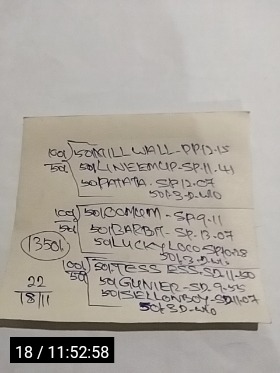 100) 50 MILLWALL - DP12.15
50) 50 LINEEMUP - SP.11.41
50 PATATA - SP12.07
50 1/3-D-W/O
100) 50 COMUM - SP9.11
50) 50 BARBIT - SP.13.07
50 LUCKYLOCO SP10.28
50 1/3-D-W/O
1350L
100) 50 TESS ESS. SD11.50
50) 50 GUNIER - SD.9.55
50 SELLONBOY - SD11.07
50 1/3D-W/O
22
18/11
18 / 11:52:58